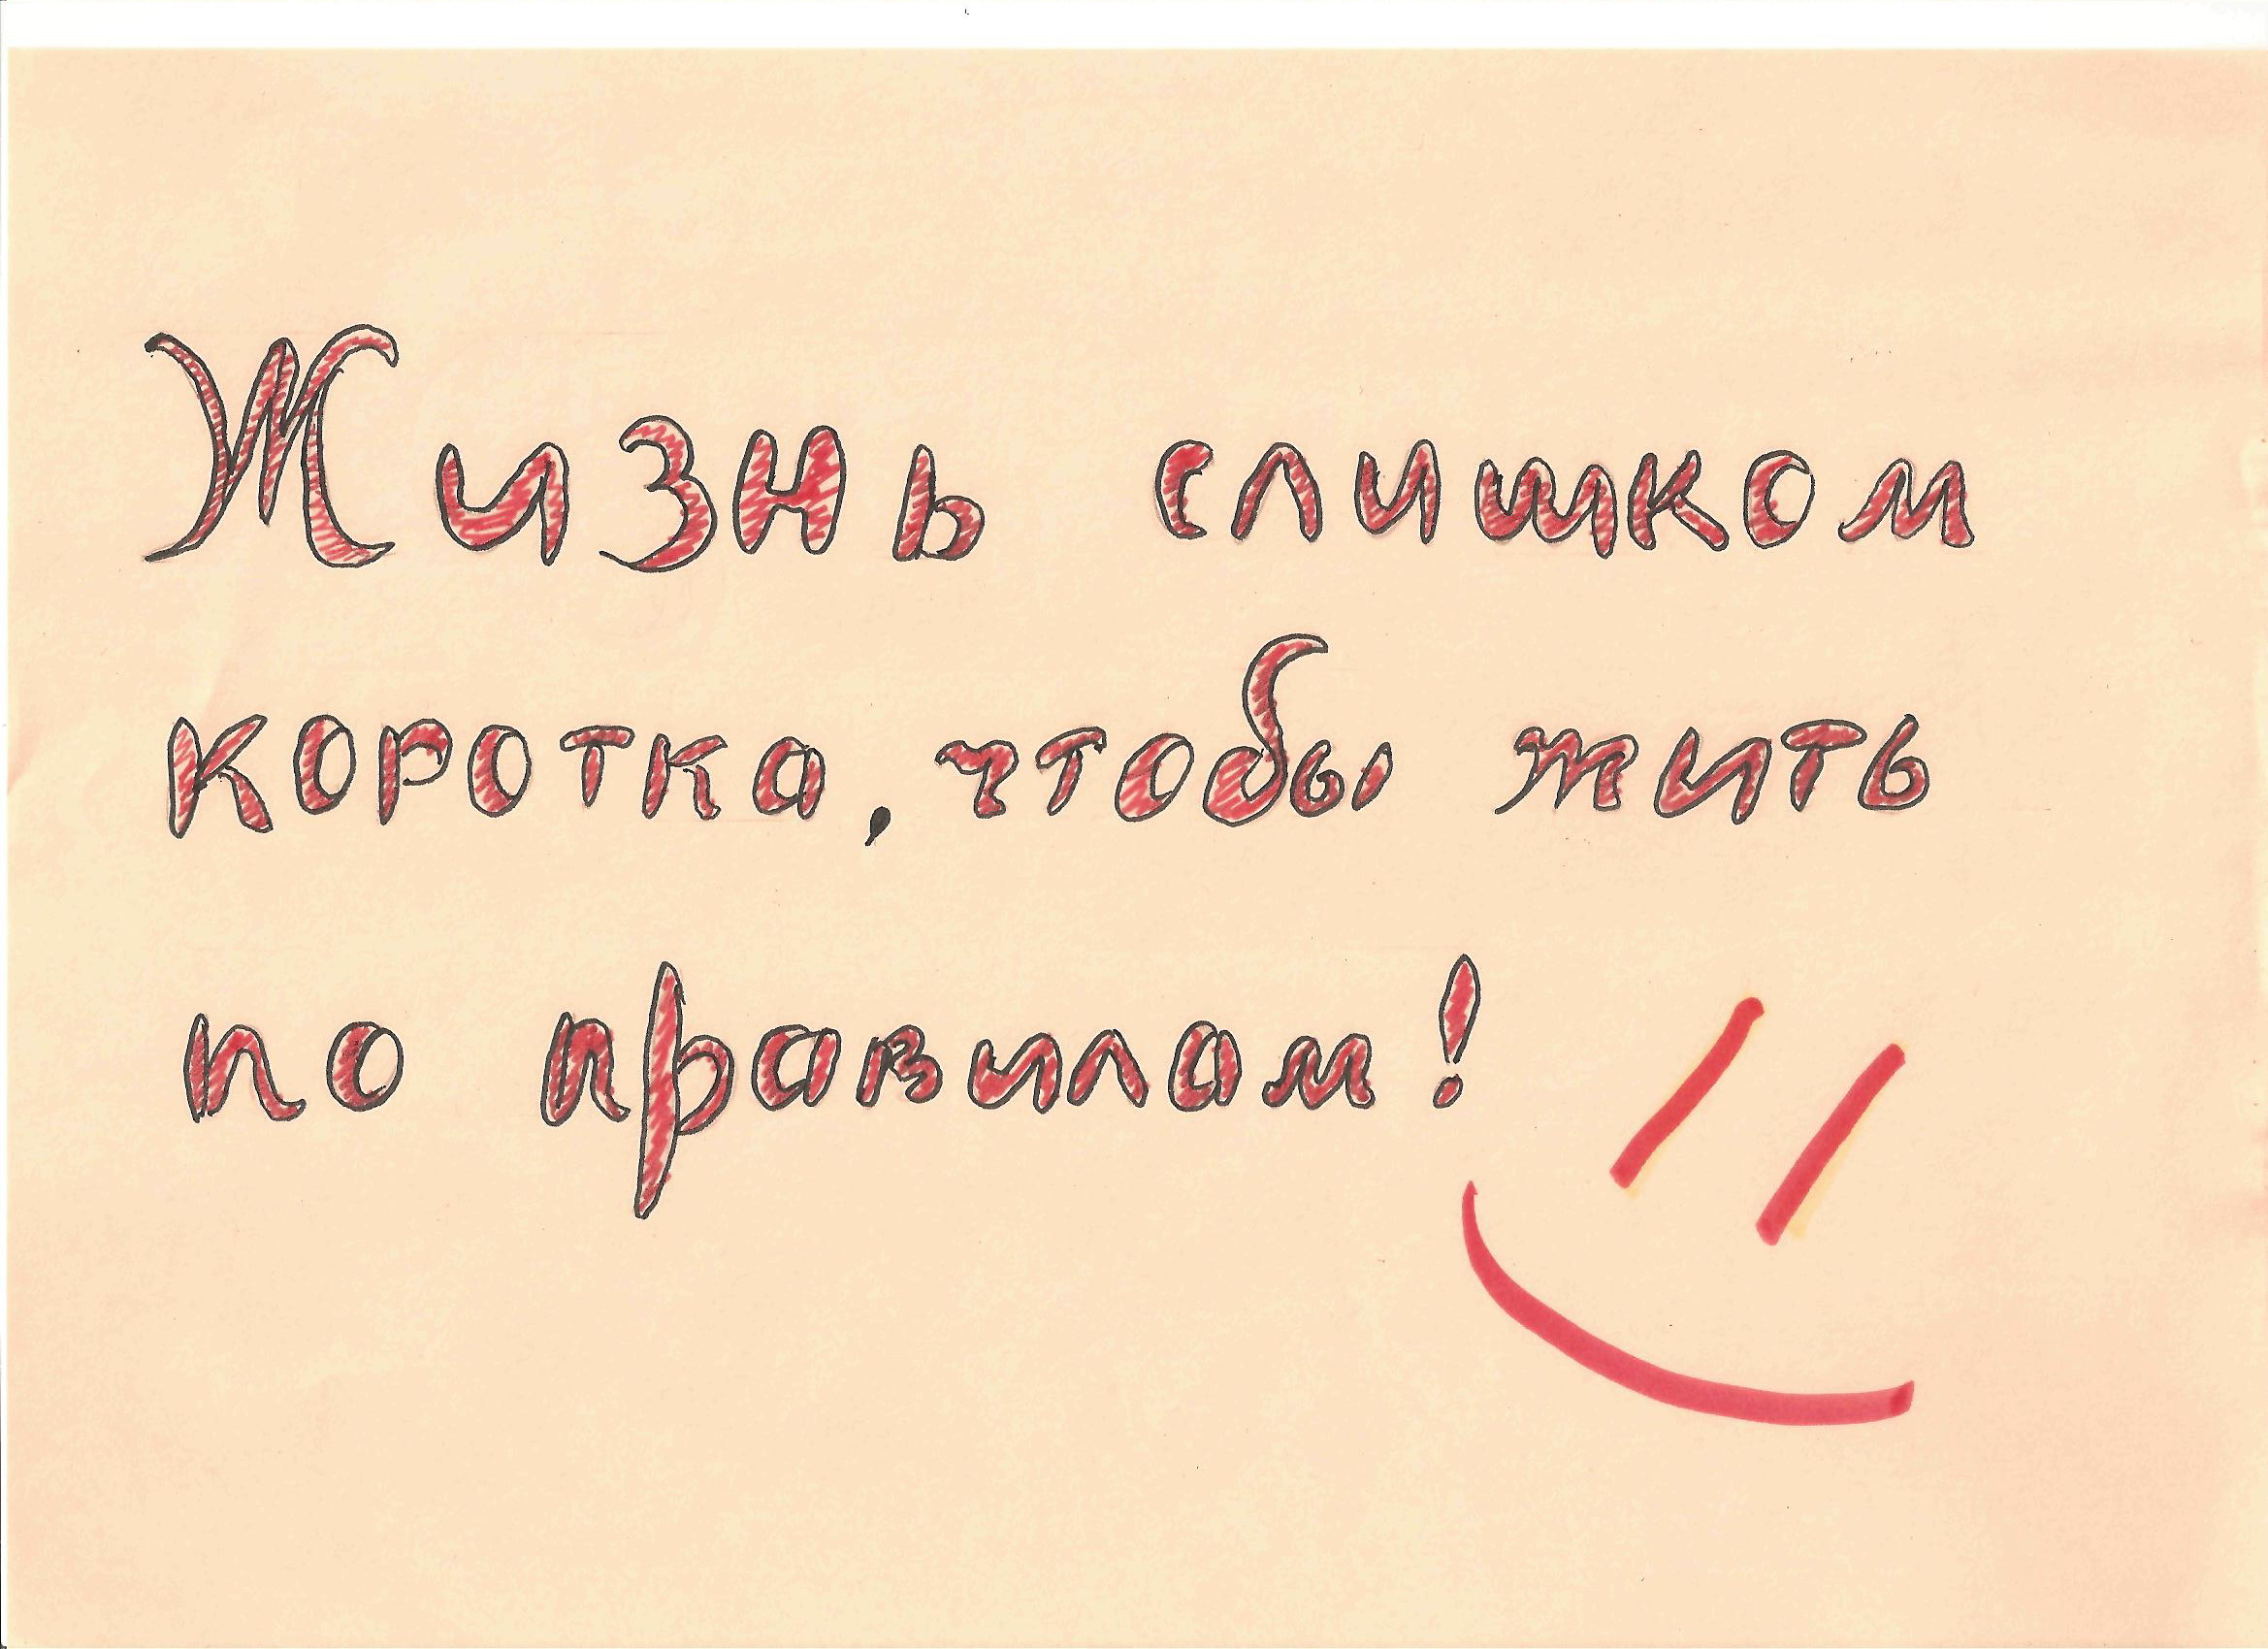 Жизнь слишком
коротка, чтобы жить
по правилам!